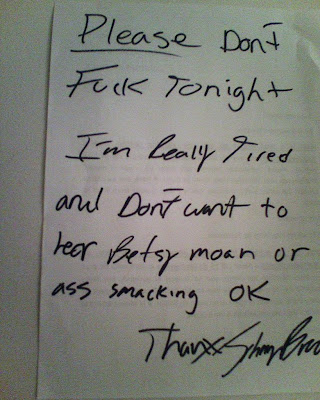 Please Don't
Fuck Tonight
I'm Really Tired
and Don't want to
hear Betsy moan or
ass smacking OK
Thanxx